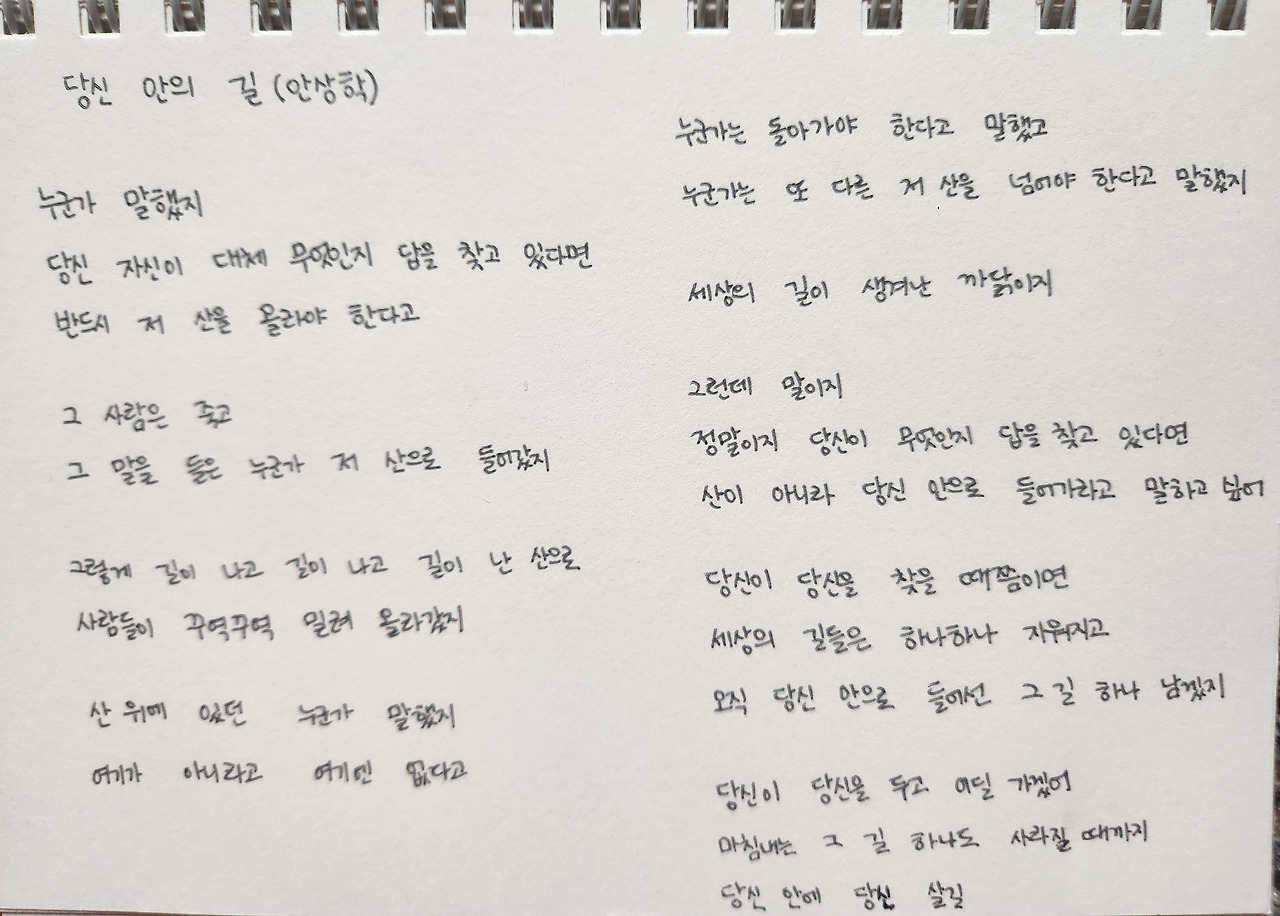 당신 안의 길 (안상학)
누군가 말했지
당신 자신이 대체 무엇인지 답을 찾고 있다면
반드시 저 산을 올라야 한다고
그 사람은 죽고
그 말을 들은 누군가 저 산으로 들어갔지
그렇게 길이 나고 길이 나고 길이 난 산으로
사람들이 꾸역꾸역 밀려 올라갔지
산 위에 있던 누군가 말했지
여기가 아니라고 여기엔 없다고
누군가는 돌아가야 한다고 말했고
누군가는 또 다른 저 산을 넘어야 한다고 말했지
세상의 길이 생겨난 까닭이지
그런데 말이지
정말이지 당신이 무엇인지 답을 찾고 있다면
산이 아니라 당신 안으로 들어가라고 말하고 싶어
당신이 당신을 찾을 때쯤이면
세상의 길들은 하나하나 지워지고
오직 당신 안으로 들어선 그 길 하나 남겠지
당신이 당신을 두고 어딜 가겠어
마침내는 그 길 하나도 사라질 때까지
당신 안에 당신 살길